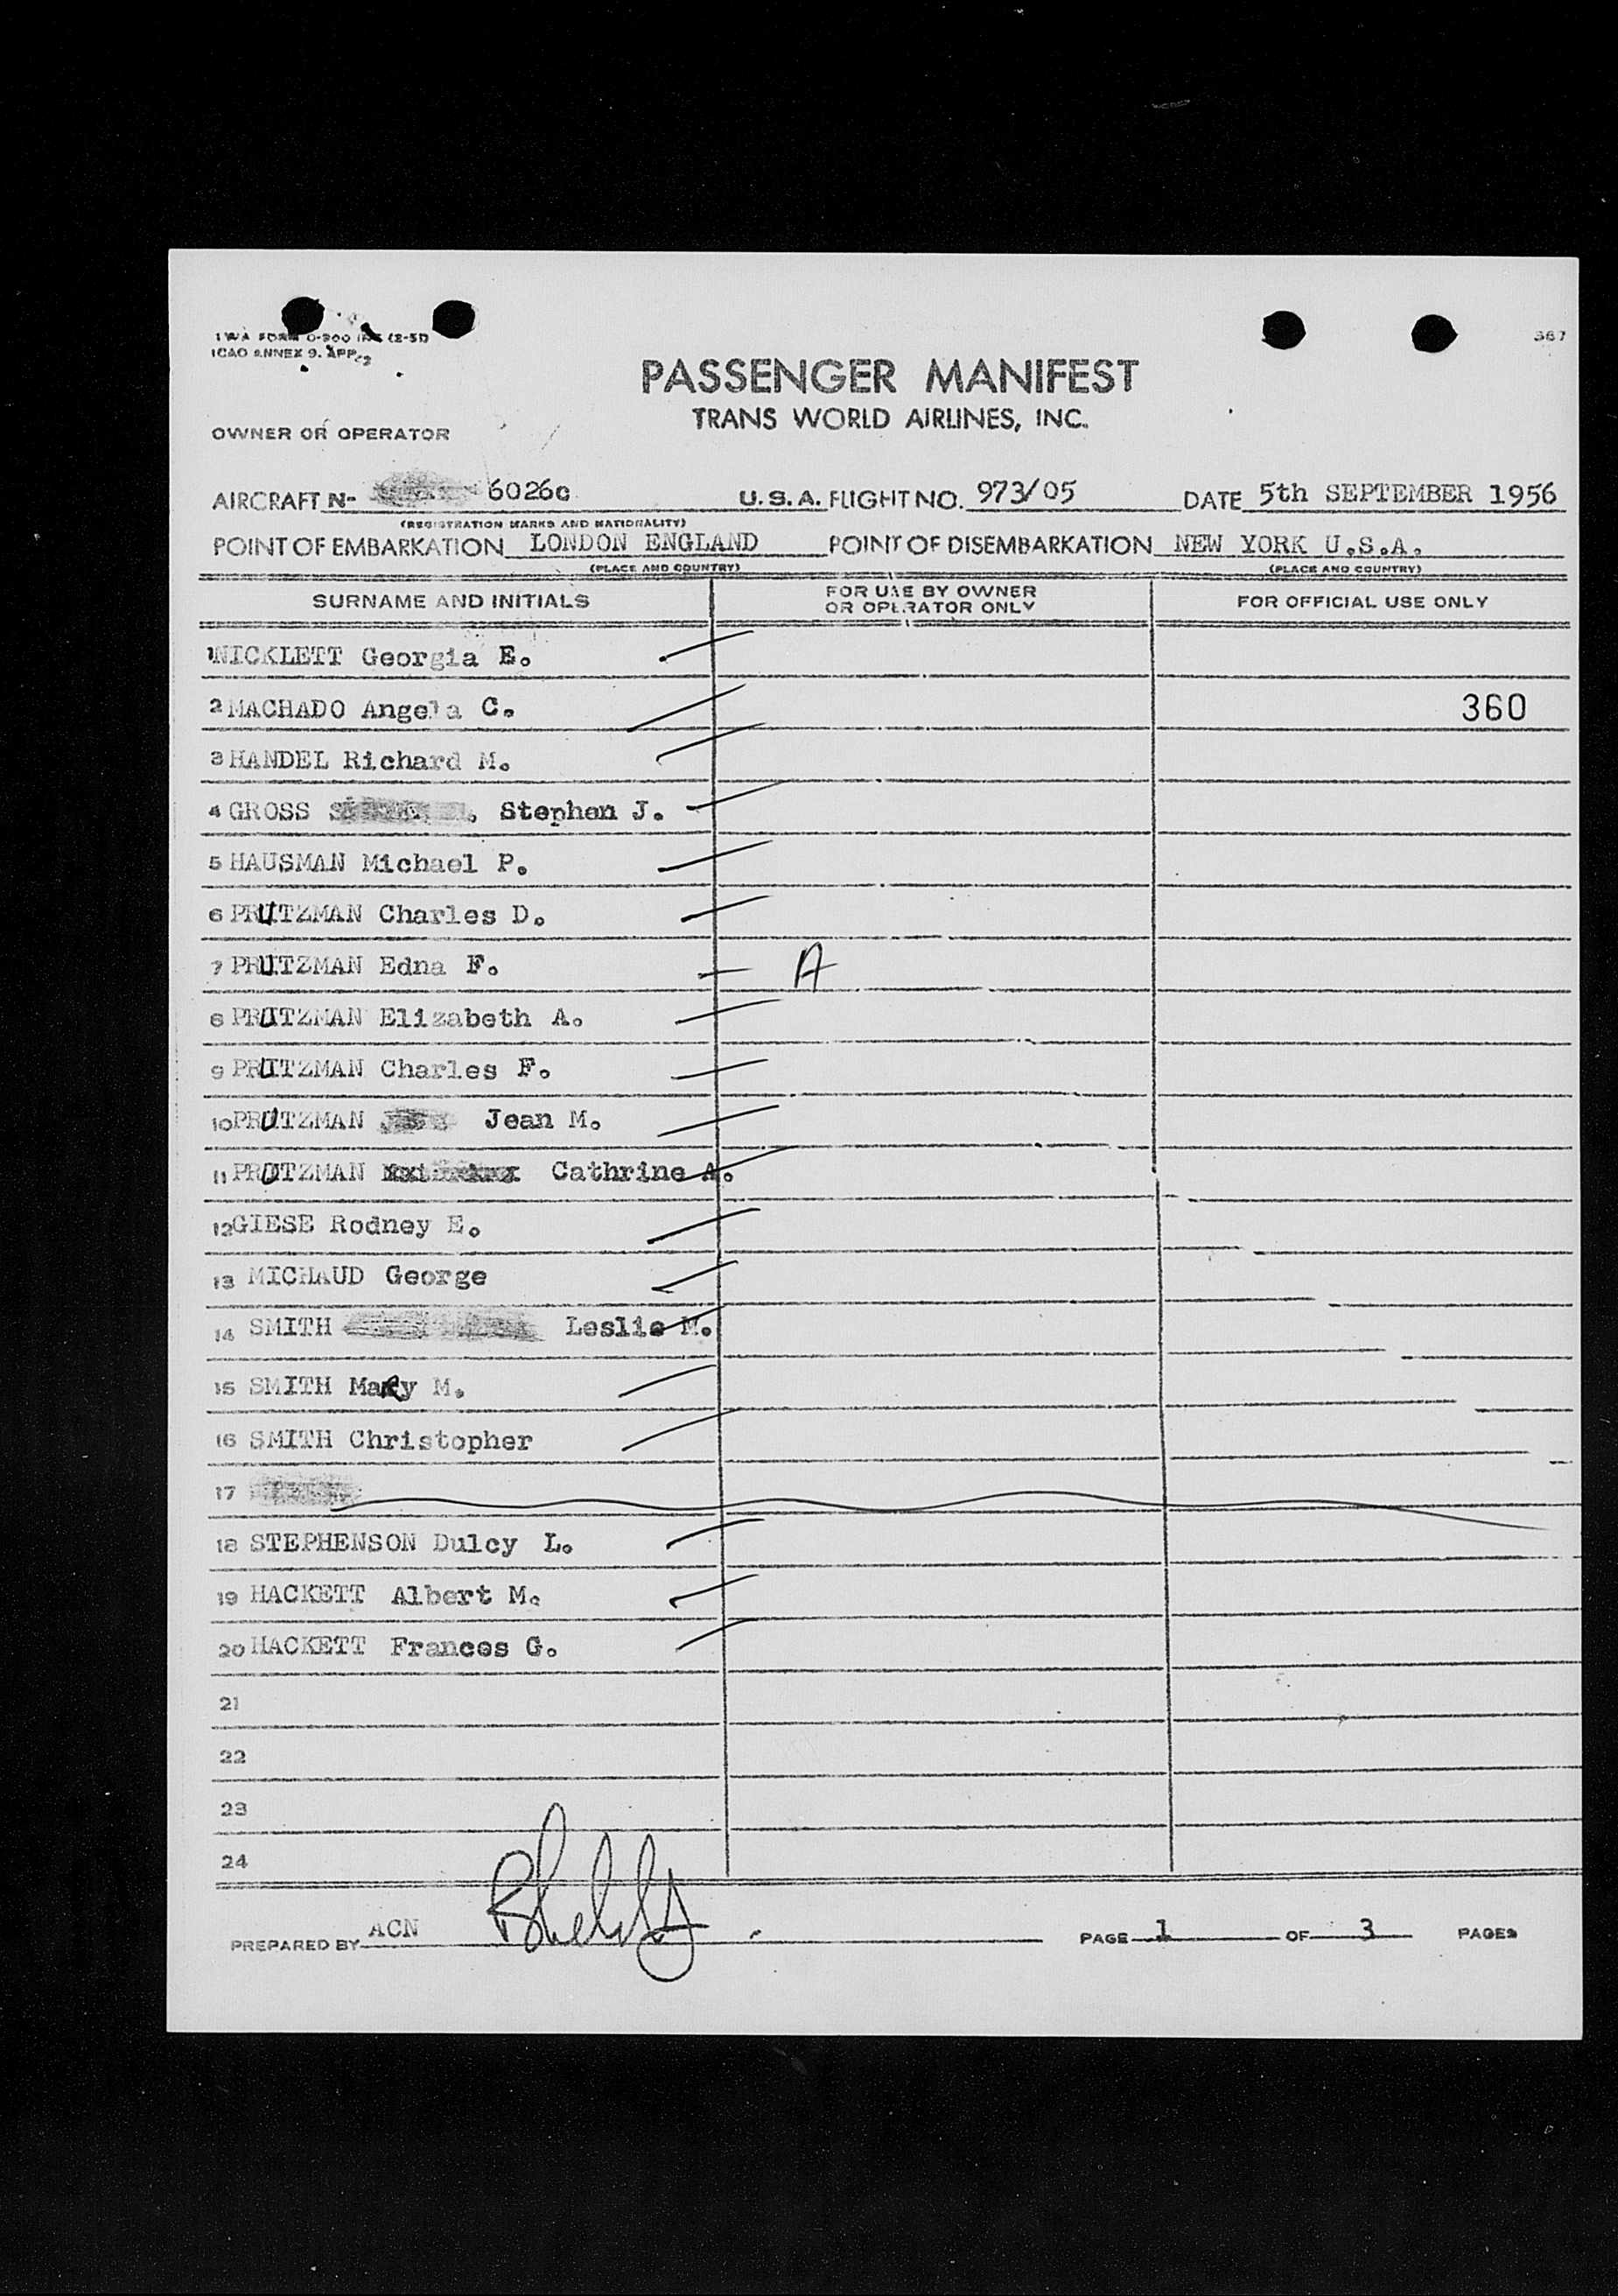 TWA FORM O-200 INT (2-51)
ICAO ANNEX 9. APP. 2
367
PASSENGER MANIFEST
TRANS WORLD AIRLINES, INC.
OWNER OR OPERATOR
AIRCRAFT N- 6026c U.S.A. FLIGHT NO. 973/05 DATE 5th SEPTEMBER 1956
(REGISTRATION MARKS AND NATIONALITY)
POINT OF EMBARKATION LONDON ENGLAND POINT OF DISEMBARKATION NEW YORK U.S.A.
(PLACE AND COUNTRY) (PLACE AND COUNTRY)
SURNAME AND INITIALS FOR USE BY OWNER OR OPERATOR ONLY FOR OFFICIAL USE ONLY
1 NICKLETT Georgia E.
2 MACHADO Angela C. 360
3 HANDEL Richard M.
4 GROSS , Stephen J.
5 HAUSMAN Michael P.
6 PRUTZMAN Charles D.
7 PRUTZMAN Edna F. A
8 PRUTZMAN Elizabeth A.
9 PRUTZMAN Charles F.
10 PRUTZMAN Jean M.
11 PRUTZMAN Cathrine A.
12 GIESE Rodney E.
13 MICHAUD George
14 SMITH Leslie M.
15 SMITH Mary M.
16 SMITH Christopher
17
18 STEPHENSON Dulcy L.
19 HACKETT Albert M.
20 HACKETT Frances G.
21
22
23
24
PREPARED BY ACN PAGE 1 OF 3 PAGES